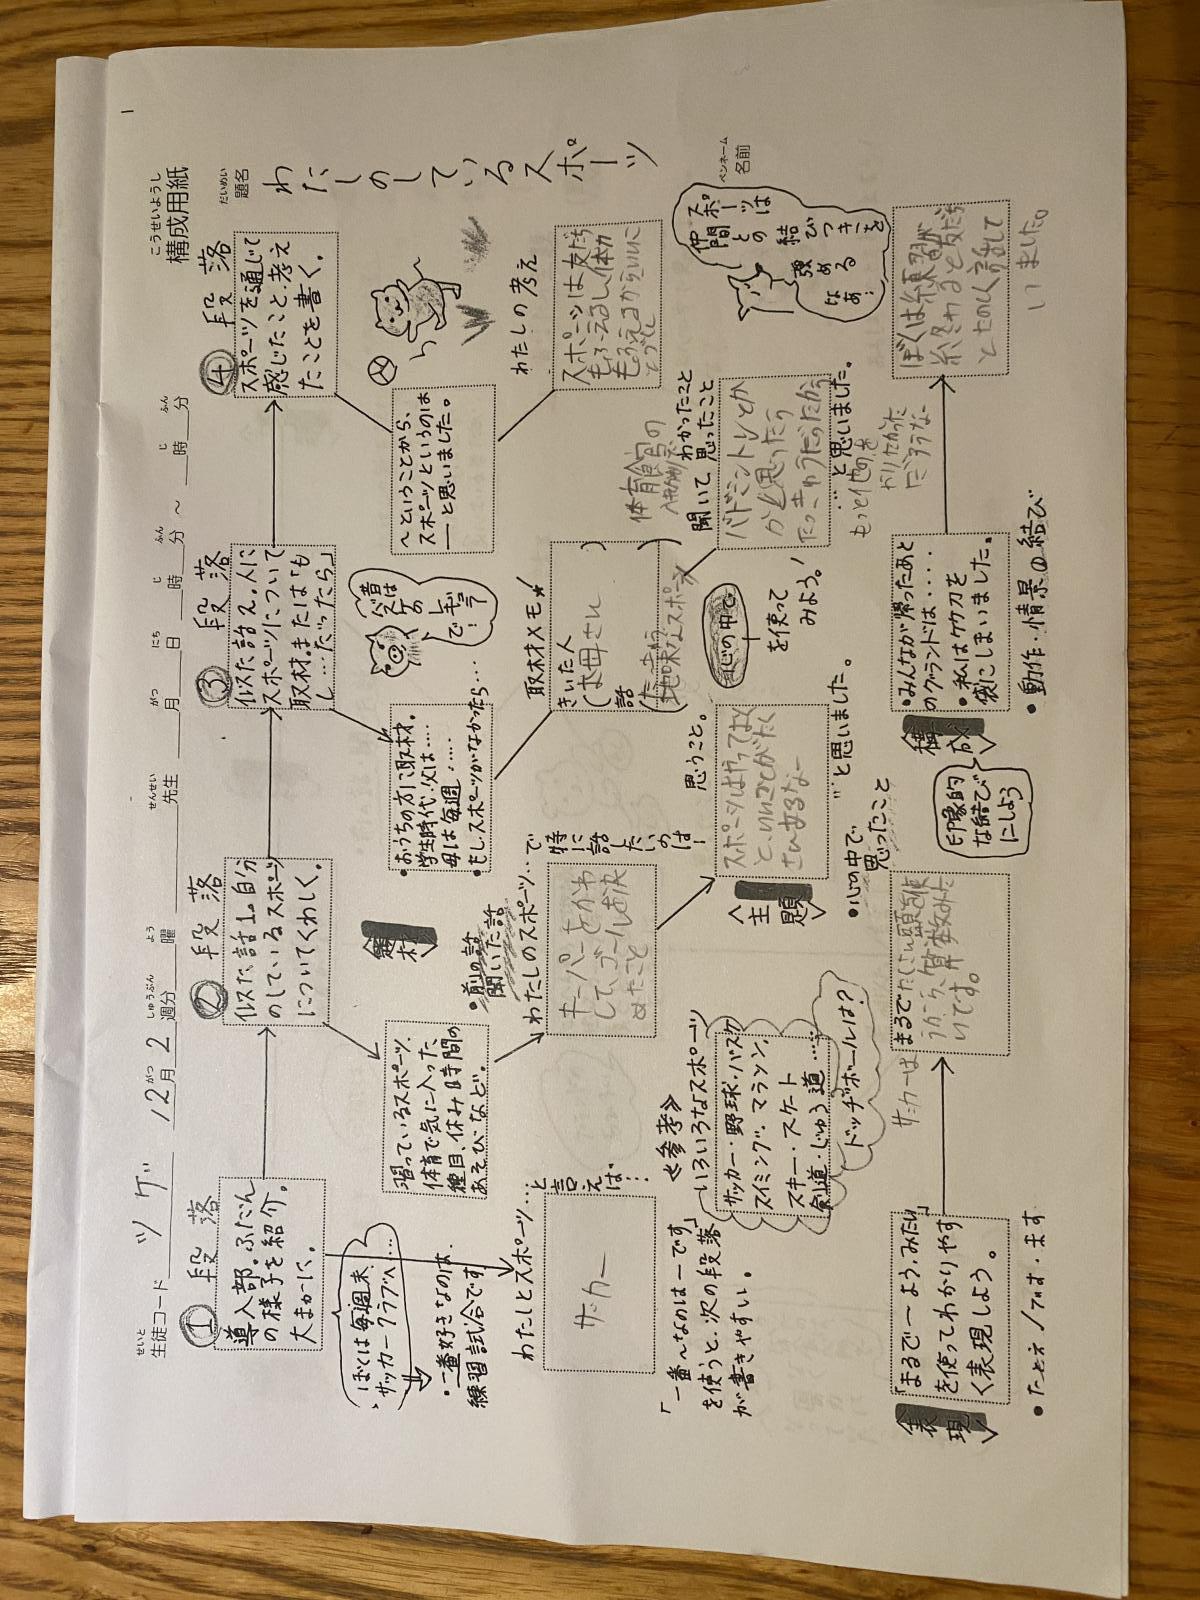 こうせいようし
構成用紙
せいと
生徒コード ツゲ 12 がつ 月 2 しゅうぶん 週分 よう 曜 せんせい 先生 がつ 月 にち 日 じ 時 ふん 分 ～ じ 時 ふん 分
だいめい
題名
わたしのしているスポーツ
ペンネーム
名前
1
① 段落
導入部。ふだん
の様子を紹介。
大まかに。
② 段落
似た話1。自分
のしているスポーツ
についてくわしく。
③ 段落
似た話2。人に
スポーツについて
取材。または「も
し…だったら」
④ 段落
スポーツを通じて
感じたこと、考え
たことを書く。
ぼくは毎週末、
サッカークラブへ…
・一番好きなのは、
練習試合です。
わたしとスポーツ…と言えば…
サッカー
「一番～なのは―です」
を使うと、次の段落
が書きやすい。
習っているスポーツ、
体育で気に入った
種目、休み時間の
あそびなど。
題材
・前の話
聞いた話
わたしのスポーツ…で特に話したいのは！
キーパーをかわ
して、ゴールを決
めたこと
≪参考≫
いろいろなスポーツ
サッカー・野球・バスケ
スイミング、マラソン、
スキー・スケート
剣道・じゅう道……
ドッヂボールは？
・おうちの方に取材。
学生時代、父は……
母は毎週……
・もしスポーツがなかったら…
昔はバスケのレギュラーで！
取材メモ★
きいた人
（お母さん）
話
（たっきゅう
地味なスポーツ）
思うこと。
スポーツはやっておく
と、いいことがたく
さんあるなー
…と思いました。
〈主題〉
・心の中で
思ったこと
心の中で
を使って
みよう！
～ということから、
スポーツというのは
―と思いました。
わたしの考え
スポーツは友だち
もふえるし、体力
もふえるからいいこ
とづくし
体育館の
聞いて、わかったこと
思ったこと
バドミントンとか
かと思ったら
たっきゅうだったから
…と思いました。
もっと他のを
やりたかった
だろうな
スポーツは
仲間との
結びつきを
強める
なぁ！
〈表現〉
「まるで～よう、みたい」
を使ってわかりやす
く表現しよう。
・たとえ
サッカーは
まるでたくさん頭を使
うから、算数みた
いです。
〈構成〉
印象的
な結び
にしよう
・みんなが帰ったあと
のグランドは・・・・
・私は竹刀を
袋にしまいました。
・動作・情景の結び
ぼくは練習が
終わると友だち
とたのしく話して
いました。